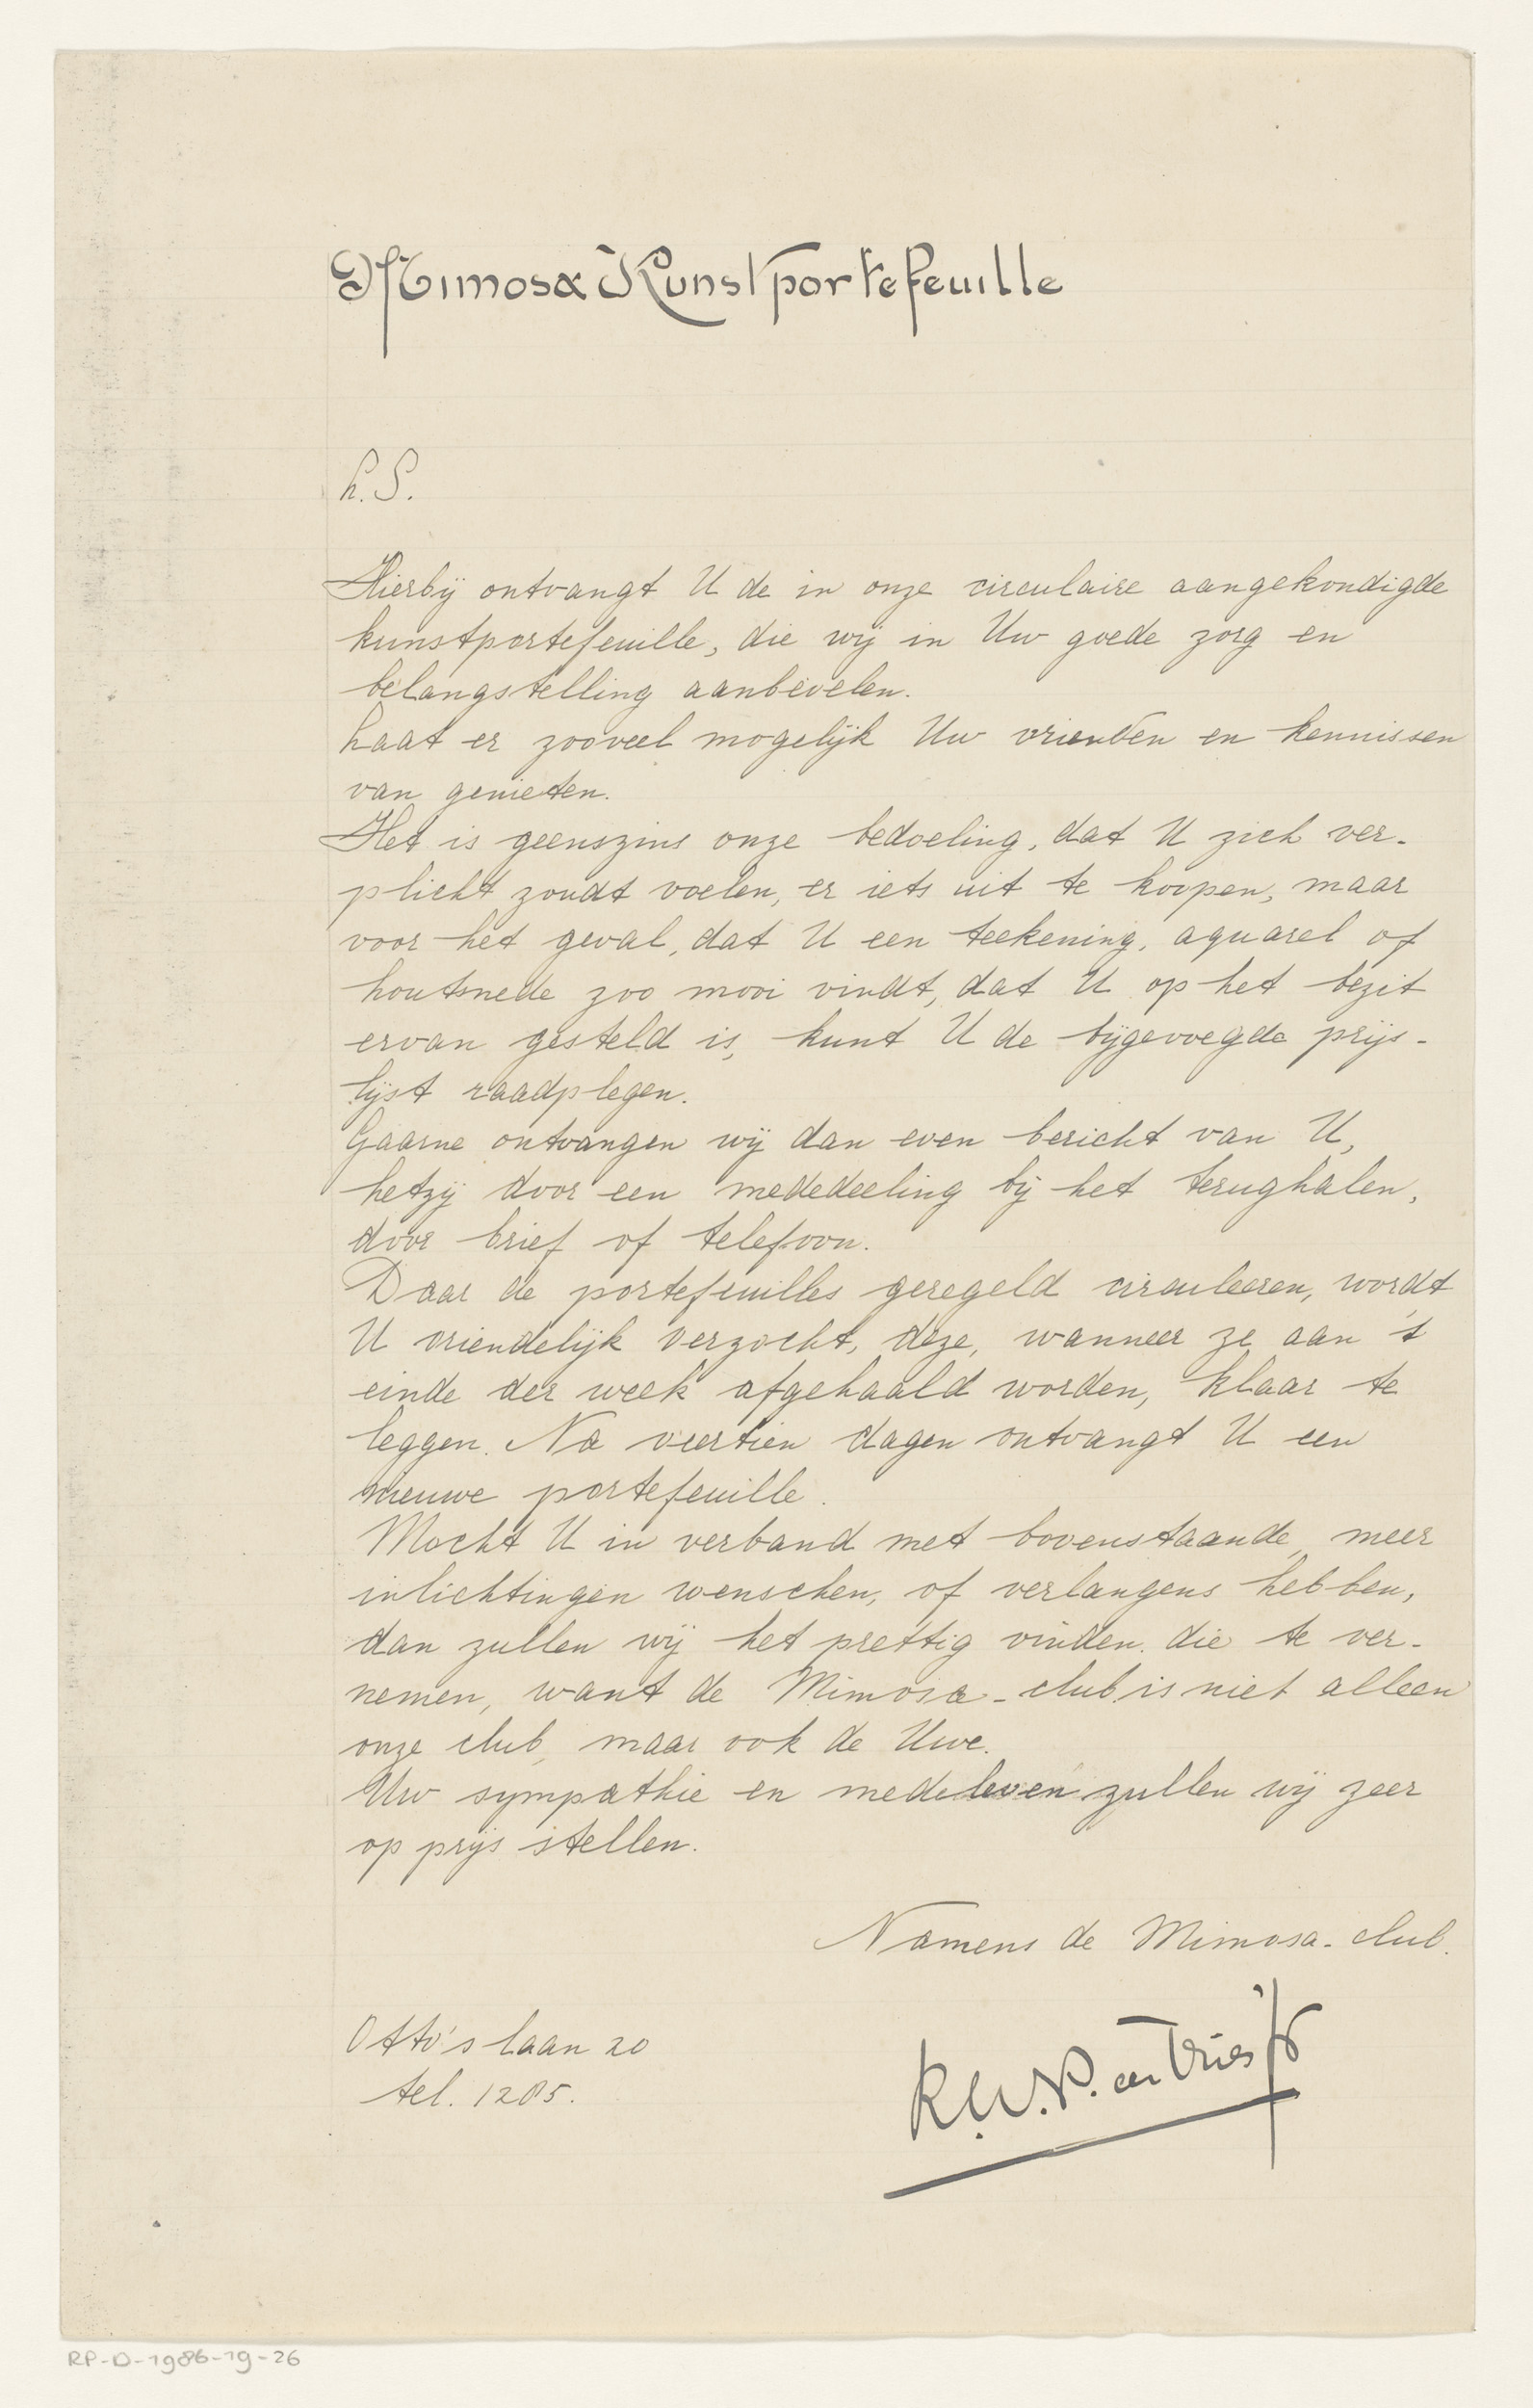 Mimosa Kunstportefeuille
L.S.
Hierbij ontvangt U de in onze circulaire aangekondigde
kunstportefeuille, die wij in Uw goede zorg en
belangstelling aanbevelen.
Laat er zooveel mogelijk Uw vrienden en kennissen
van genieten.
Het is geenszins onze bedoeling, dat U zich ver-
plicht zoudt voelen, er iets uit te koopen, maar
voor het geval, dat U een teekening, aquarel of
houtsnede zoo mooi vindt, dat U op het bezit
ervan gesteld is, kunt U de bijgevoegde prijs-
lijst raadplegen.
Gaarne ontvangen wij dan even bericht van U,
hetzij door een mededeeling bij het terughalen,
door brief of telefoon.
Daar de portefeuilles geregeld circuleeren, wordt
U vriendelijk verzocht, deze, wanneer ze aan 't
einde der week afgehaald worden, klaar te
leggen. Na veertien dagen ontvangt U een
nieuwe portefeuille.
Mocht U in verband met bovenstaande, meer
inlichtingen wenschen, of verlangens hebben,
dan zullen wij het prettig vinden die te ver-
nemen, want de Mimosa-club is niet alleen
onze club, maar ook de Uwe.
Uw sympathie en medeleven zullen wij zeer
op prijs stellen.
Namens de Mimosa-club.
Otto's laan 20
tel. 1285.
R.W.P. de Vries Jr
RP-D-1986-19-26